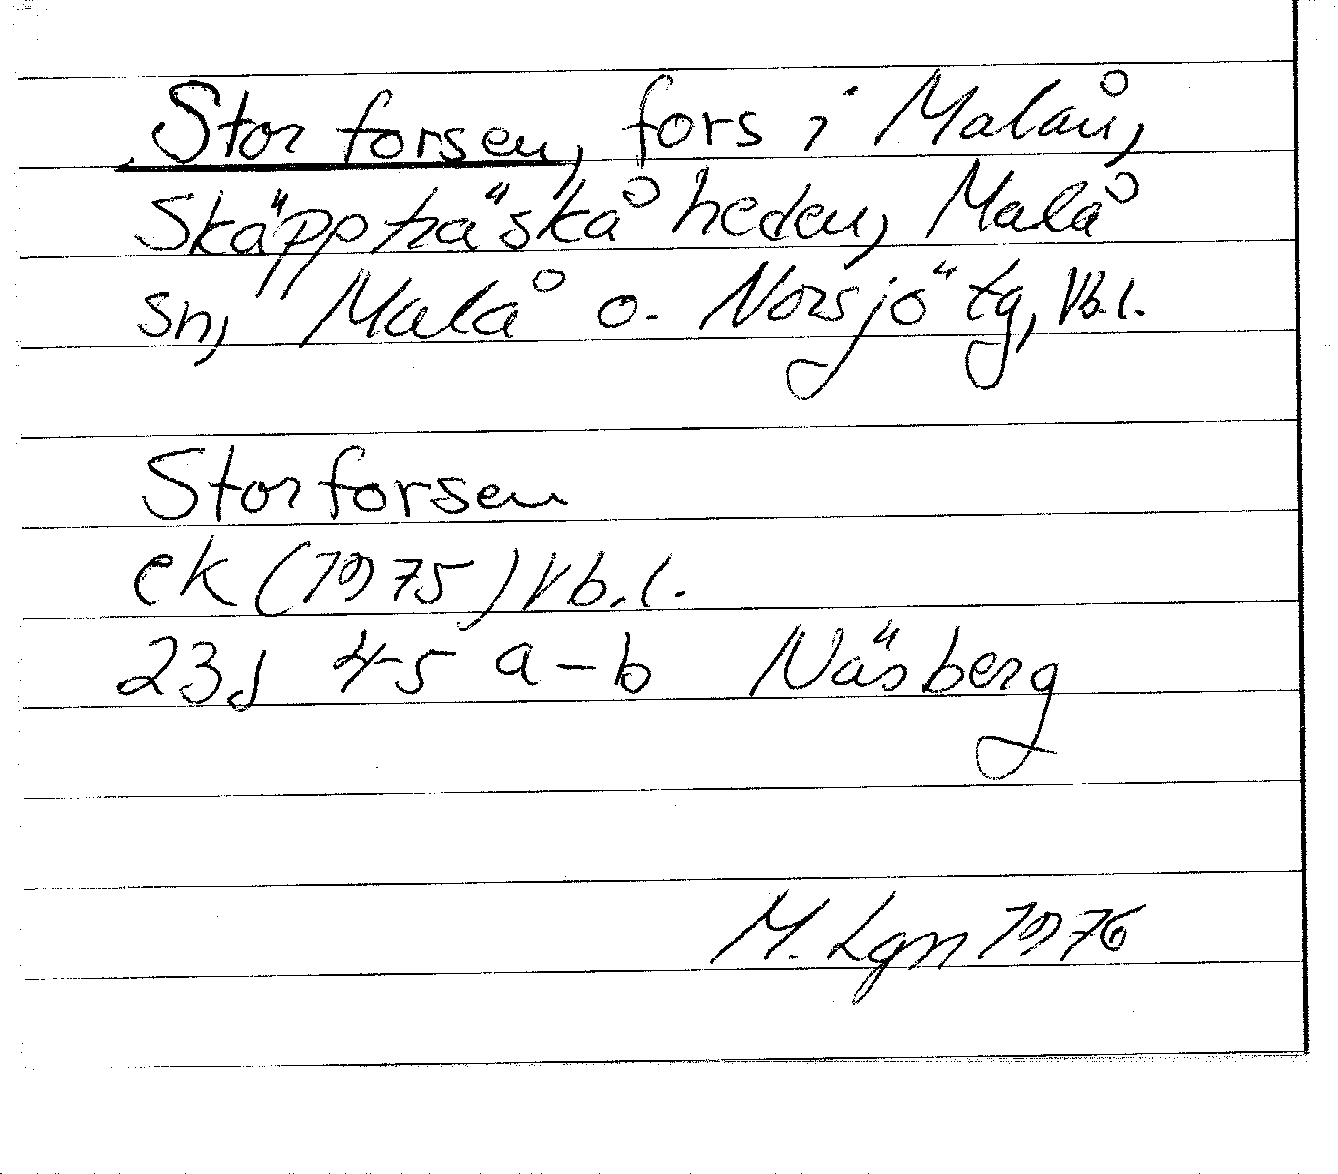 Storforsen, fors i Malån,
Skäppträskåheden, Malå
sn, Malå o. Norsjö tg, Vb.l.
Storforsen
ek (1975) Vb.l.
23J 4-5 a-b Näsberg
M. Lgn 1976